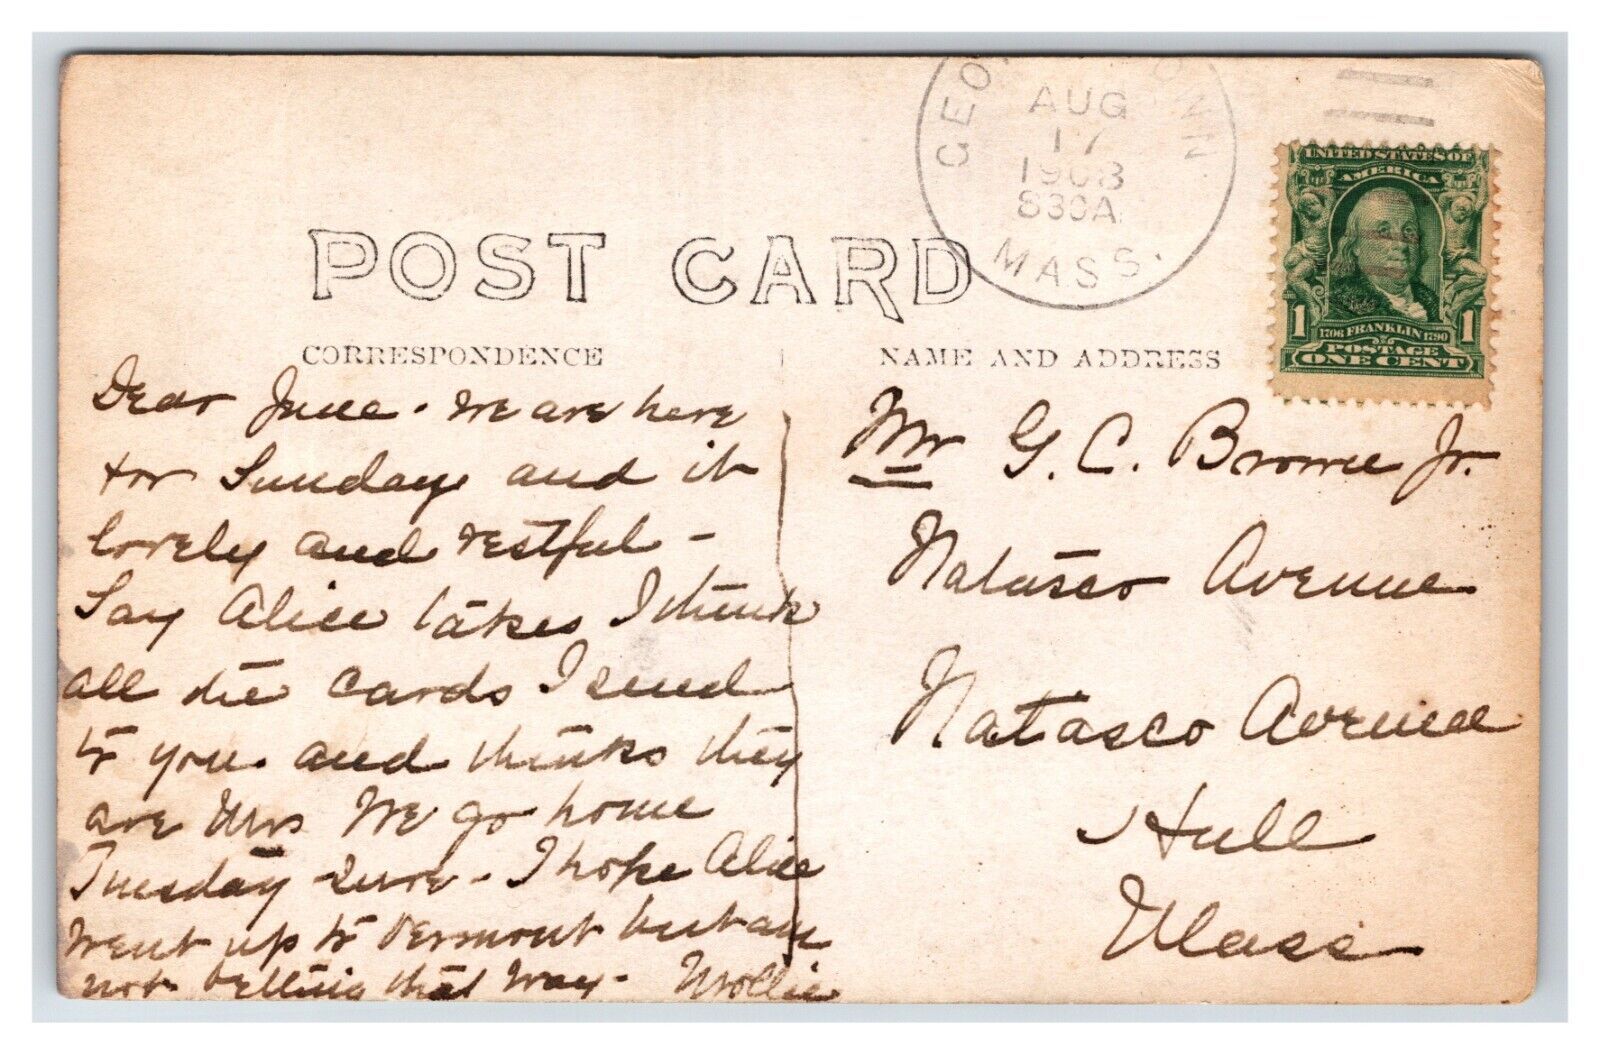 GEO WN
AUG
17
1908
830A
MASS.
UNITED STATES OF
AMERICA
1 1706 FRANKLIN 1790 1
POSTAGE
ONE CENT
POST CARD
CORRESPONDENCE
NAME AND ADDRESS
Dear June. We are here
for Sunday and it
lovely and restful -
Say Alice takes I think
all the cards I send
to you. and thinks they
are Mrs We go home
Tuesday sure - I hope Alice
went up to Vermont but am
not betting that way - Mollie
Mr G. C. Browne Jr.
Natasco Avenue
Natasco Avenue
Hull
Mass